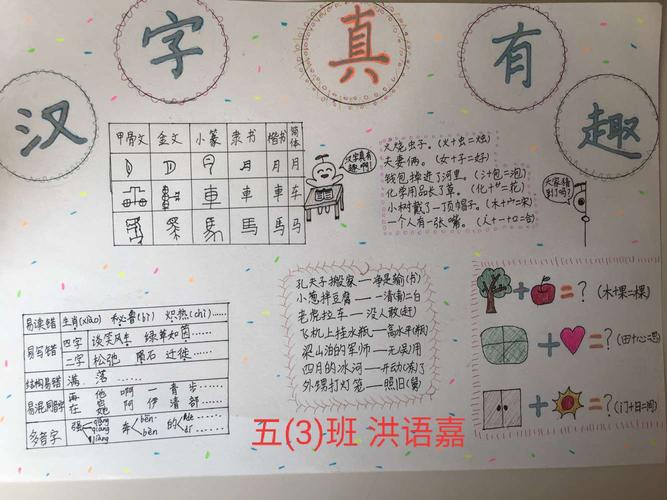 汉字真有趣
甲骨文 金文 小篆 隶书 楷书 简体
月 月 月
車 車 車 车
馬 馬 马
汉字真有趣啊!
火烧虫子。(火+虫=烛)
夫妻俩。(女+子=好)
钱包掉进了河里。(氵+包=泡)
化学用品长了草。(化+艹=花)
小树戴了一顶帽子。(木+宀=宋)
一个人有一张嘴。(人+一+口=合)
大家猜到了吗?
易读错 生肖(xiào) 秘鲁(bì) 炽热(chì)……
易写错 四字 谈笑风生 绿草如茵……
二字 松弛 陨石 迁徙……
结构易错 满 落 ……
易混同音字 再 他 啊 一 青 步……
在 她 阿 伊 清 部……
多音字 强 奔 bēn bèn 的
孔夫子搬家——净是输(书)
小葱拌豆腐——一清(青)二白
老虎拉车——没人敢(赶)
飞机上挂水瓶——高水平(瓶)
梁山泊的军师——无(吴)用
四月的冰河——开动(冻)了
外甥打灯笼——照旧(舅)
+ = ? (木+果=棵)
+ = ? (田+心=思)
+ = ? (门+日=间)
五(3)班 洪语嘉